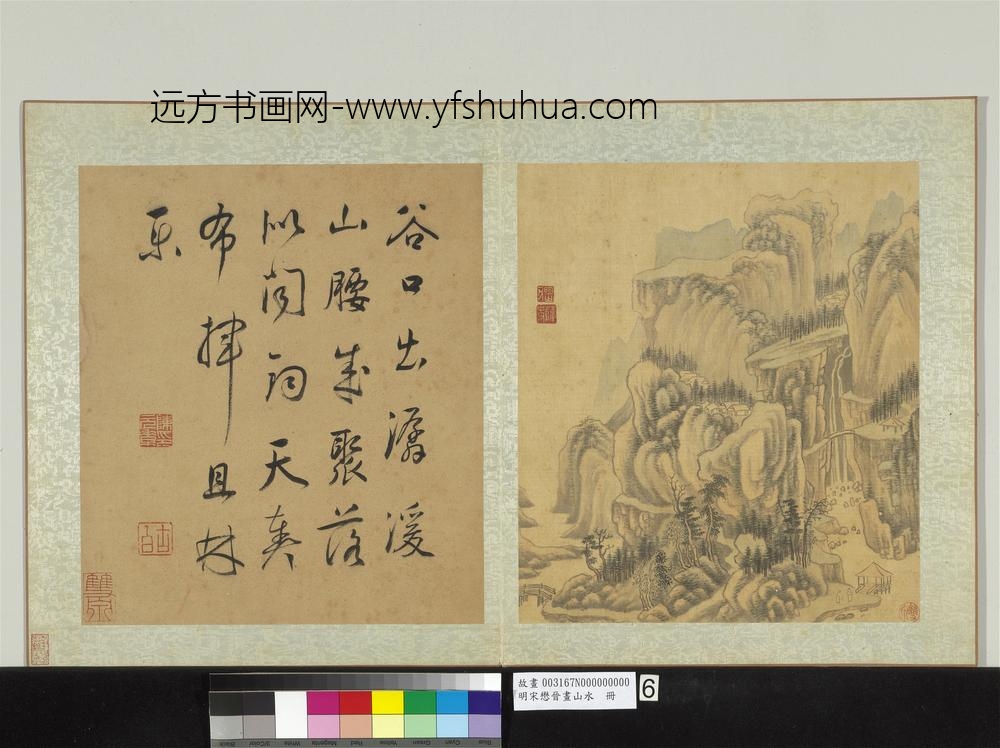 远方书画网-www.yfshuhua.com
谷口出潺湲
山腰成聚落
似聞鈞天奏
布揮且林
樂
故畫 003167N000000000
明宋懋晉畫山水 冊
6
Black
3/Color
White
Magenta
Red
Yellow
Green
Cyan
Blue